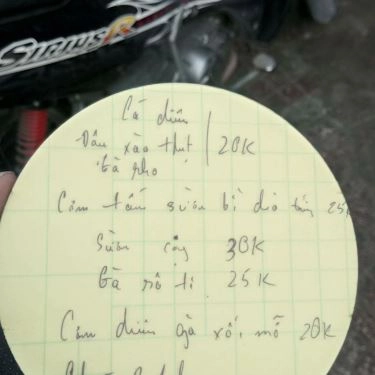 Sirius R
Cá diêu
Đậu xào thịt 20K
Gà kho
Cơm tấm sườn bì chả trứng 25K
Sườn cây 30K
Gà rô ti 25K
Cơm chiên gà xối mỡ 20K